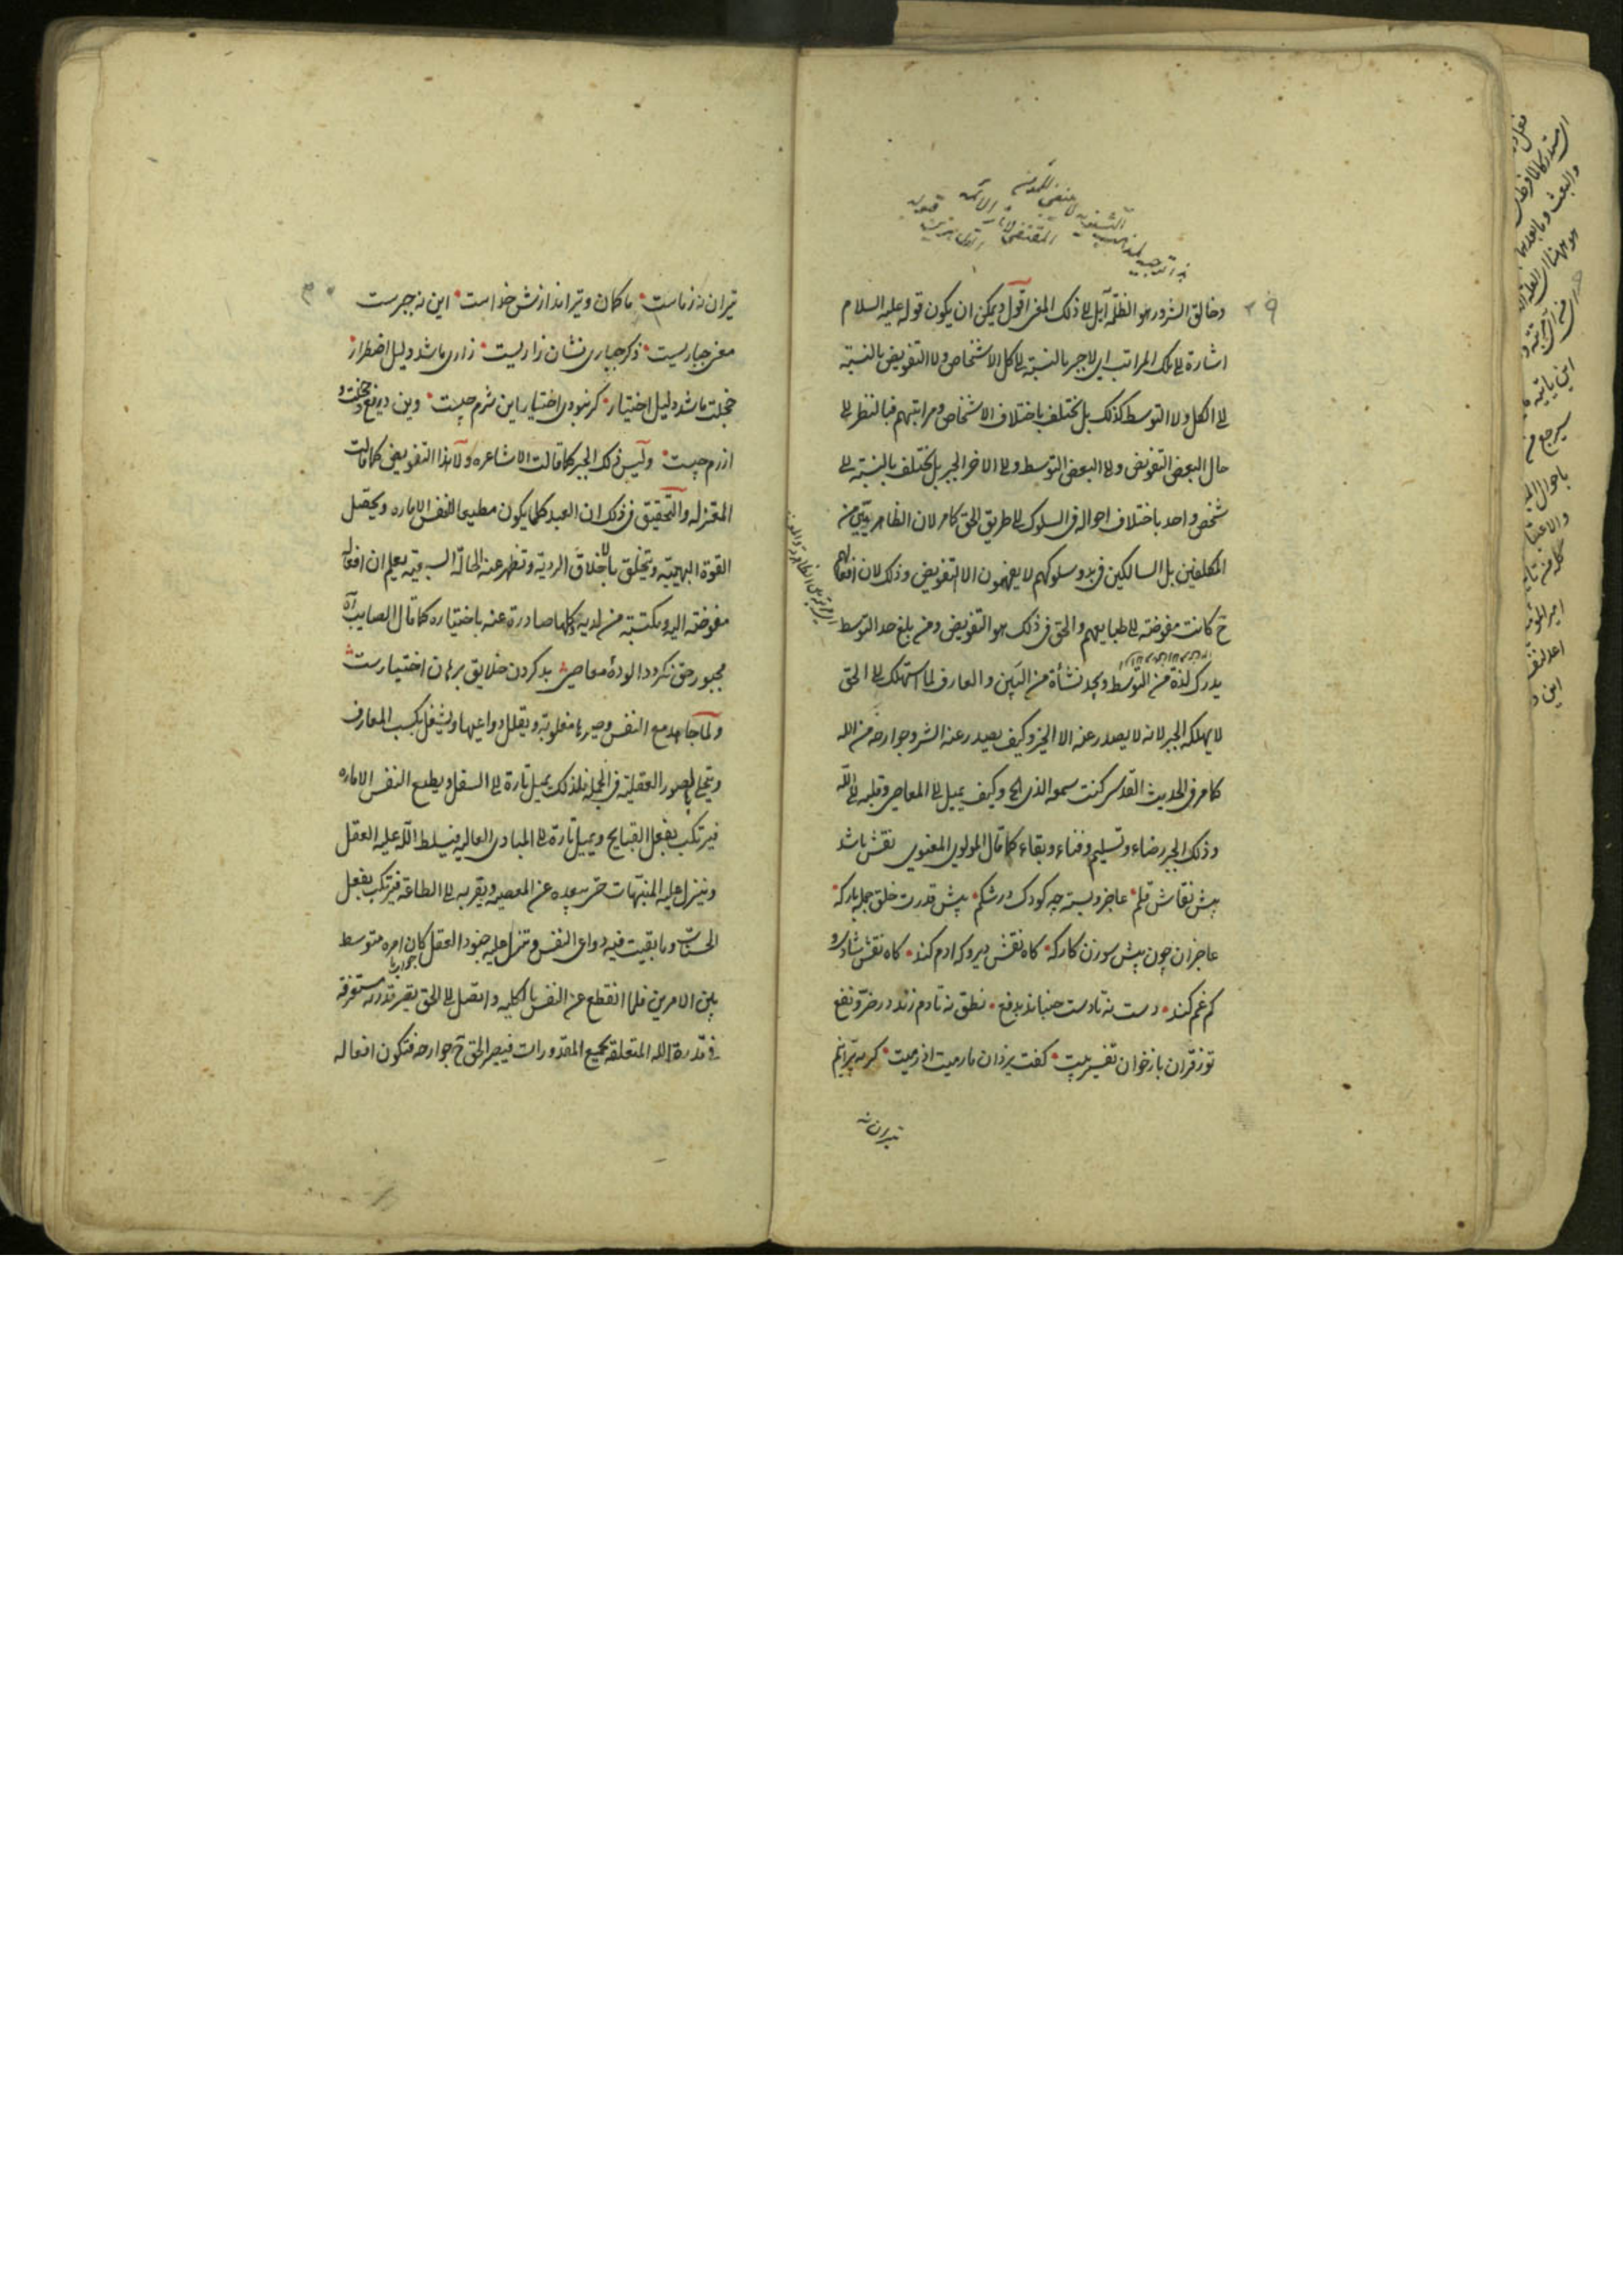 وخالق الشرور هو الظلمة آيل الی ذلک المعنی اقول ویمکن ان یکون قوله علیه السلام
اشارة الی تلک المراتب ای لا جبر بالنسبة الی کل الاشخاص ولا التفویض بالنسبة
الی الکل ولا التوسط کذلک بل یختلف باختلاف الاشخاص ومراتبهم فبالنظر الی
حال البعض التفویض والی البعض التوسط والی الاخر الجبر بل یختلف بالنسبة الی
شخص واحد باختلاف احواله فی السلوک الی طریق الحق کما مر لان الظاهریین من
المکلفین بل السالکین فی بدو سلوکهم لا یفهمون الا التفویض وذلک لان افعالهم
ح کانت مفوضة الی طبایعهم والحق فی ذلک هو التفویض ومن بلغ حد التوسط
یدرک لذة من التوسط ویجد نشأة من البین والعارف لما استهلک الی الحق
لا یهلکه الجبر لانه لا یصدر عنه الا الخیر وکیف یصدر عنه الشر وجوارحه من الله
کما مر فی الحدیث القدسی کنت سمعه الذی الخ وکیف یمیل الی المعاصی وقلبه الی الله
وذلک الجبر رضاء وتسلیم وفناء وبقاء کما قال المولوی المعنوی نقش باشد
پیش نقاش قلم عاجز وبسته چه کودک در شکم پیش قدرت خلق جمله بارکه
عاجزان چون پیش سوزن کارکه کاه نقش دیو وکه ادم کند کاه نقش شاد و
کم غم کند دست نه تا دست جنباند بدفع نطق نه تا دم زند در ضر ونفع
تو ز قران باز خوان تفسیر بیت کفت یزدان ما رمیت اذ رمیت کر بپرانیم
تیران نه
تیران نه ز ماست ما کمان وتیر اندازش خداست این نه جبرست
معنی جباریست ذکر جباری نشان زاریست زاری ما شد دلیل اضطرار
خجلت ما شد دلیل اختیار کر نبودی اختیار این شرم چیست وین دریغ وخجلت و
ازرم چیست ولیس ذلک الجبر کما قالت الاشاعره ولا هذا التفویض کما قالت
المعتزله والتحقیق فی ذلک ان العبد کلما یکون مطیعا للنفس الاماره ویحصل
القوة البهیمیه ویتخلق بالاخلاق الردیه وتظهر عنه الحالة السبعیه یعلم ان افعاله
مفوضة الیه ومکتسبة من لدیه وکلها صادرة عنه باختیاره کما قال الصایب
مجبور حق نکردد الوده معاصی بد کردن خلایق برهان اختیارست
ولما جاهد مع النفس وصیرها مغلوبة ویقلل دواعیها ویشغل بکسب المعارف
ویتحلی بالصور العقلیة فی الجملة فلذلک یمیل تارة الی السفل ویطیع النفس الاماره
فیرتکب بفعل القبایح ویمیل تارة الی المبادی العالیه فیسلط الله علیه العقل
وینزل علیه المنبهات حتی یبعده عن المعصیه ویقربه الی الطاعة فیرتکب بفعل
الحسنات وما بقیت فیه دواعی النفس وتنزل علیه جنود العقل کان امره متوسط
بین الامرین فلما انقطع عن النفس بالکلیه واتصل الی الحق یصیر قدرته مستغرقه
فی قدرة الله المتعلقة بجمیع المقدورات فیصیر الحق ح جوارحه فتکون افعاله